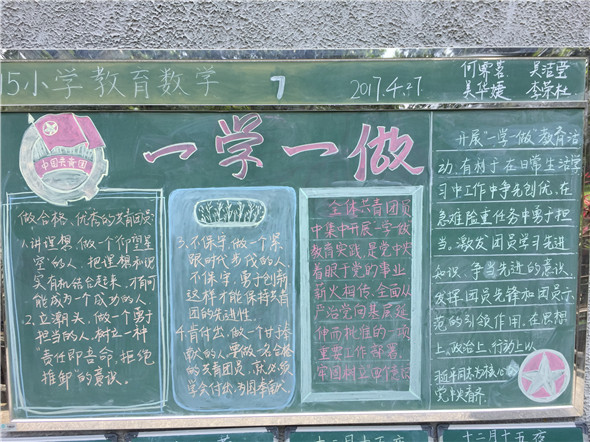 5小学教育数学
7
2017.4.27
何霁茗
吴洁莹
吴华媛
李荣杜
一学一做
中国共青团
做合格、优秀的共青团员
1.讲理想,做一个仰望星
空的人,把理想和现
实有机结合起来,才有可
能成为一个成功的人。
2.立潮头,做一个勇于
担当的人,树立一种
“责任即吾命,拒绝
推卸”的意识。
3.不保守,做一个紧
跟时代步伐的人,
不保守,勇于创新
这样才能保持共青
团的先进性。
4.肯付出,做一个甘于奉
献的人,要做一名合格
的共青团员,就必须
学会付出,为团奉献
全体共青团员
中集中开展一学一做
教育实践,是党中央
着眼于党的事业
薪火相传、全面从
严治党向基层延
伸而批准的一项
重要工作部署。
牢固树立四个意识
开展“一学一做”教育活
动,有利于在日常生活学
习中工作中争先创优,在
急难险重任务中勇于担
当,激发团员学习先进
知识,争当先进的意识,
发挥团员先锋和团员示
范的引领作用,在思想
上、政治上、行动上以
党中央看齐
十二月十五夜
十二月十五夜